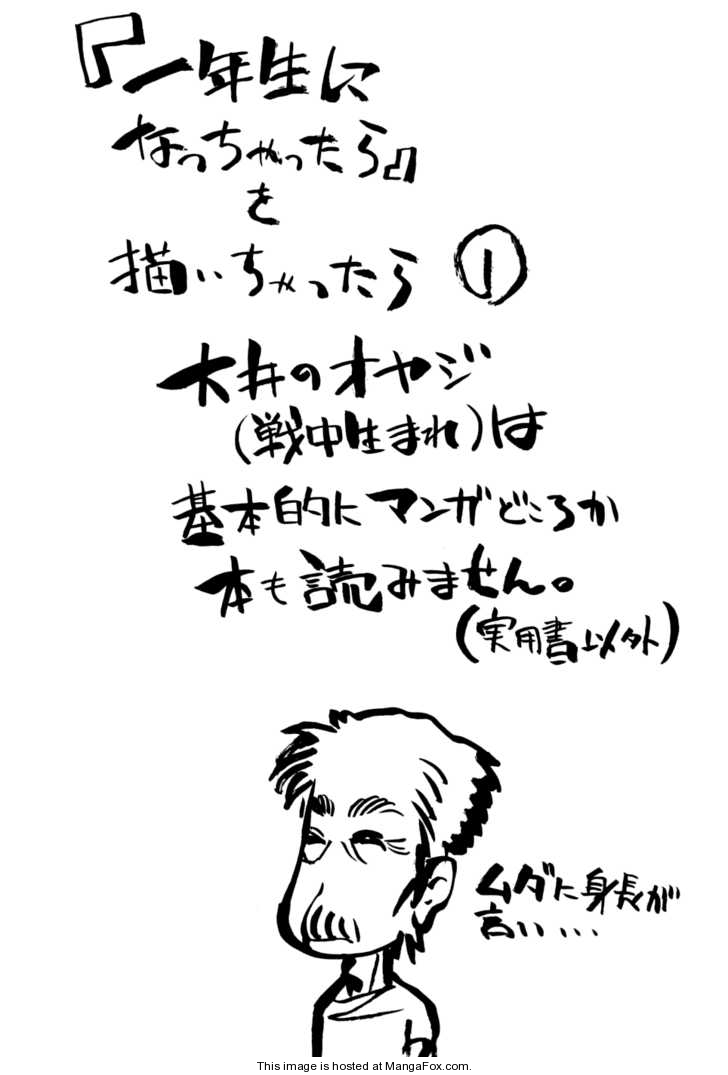 『一年生に
なっちゃったら』
を
描いちゃったら ①
大井のオヤジ
(戦中生まれ)は
基本的にマンガどころか
本も読みません。
(実用書以外)
ムダに身長が
高い...
This image is hosted at MangaFox.com.